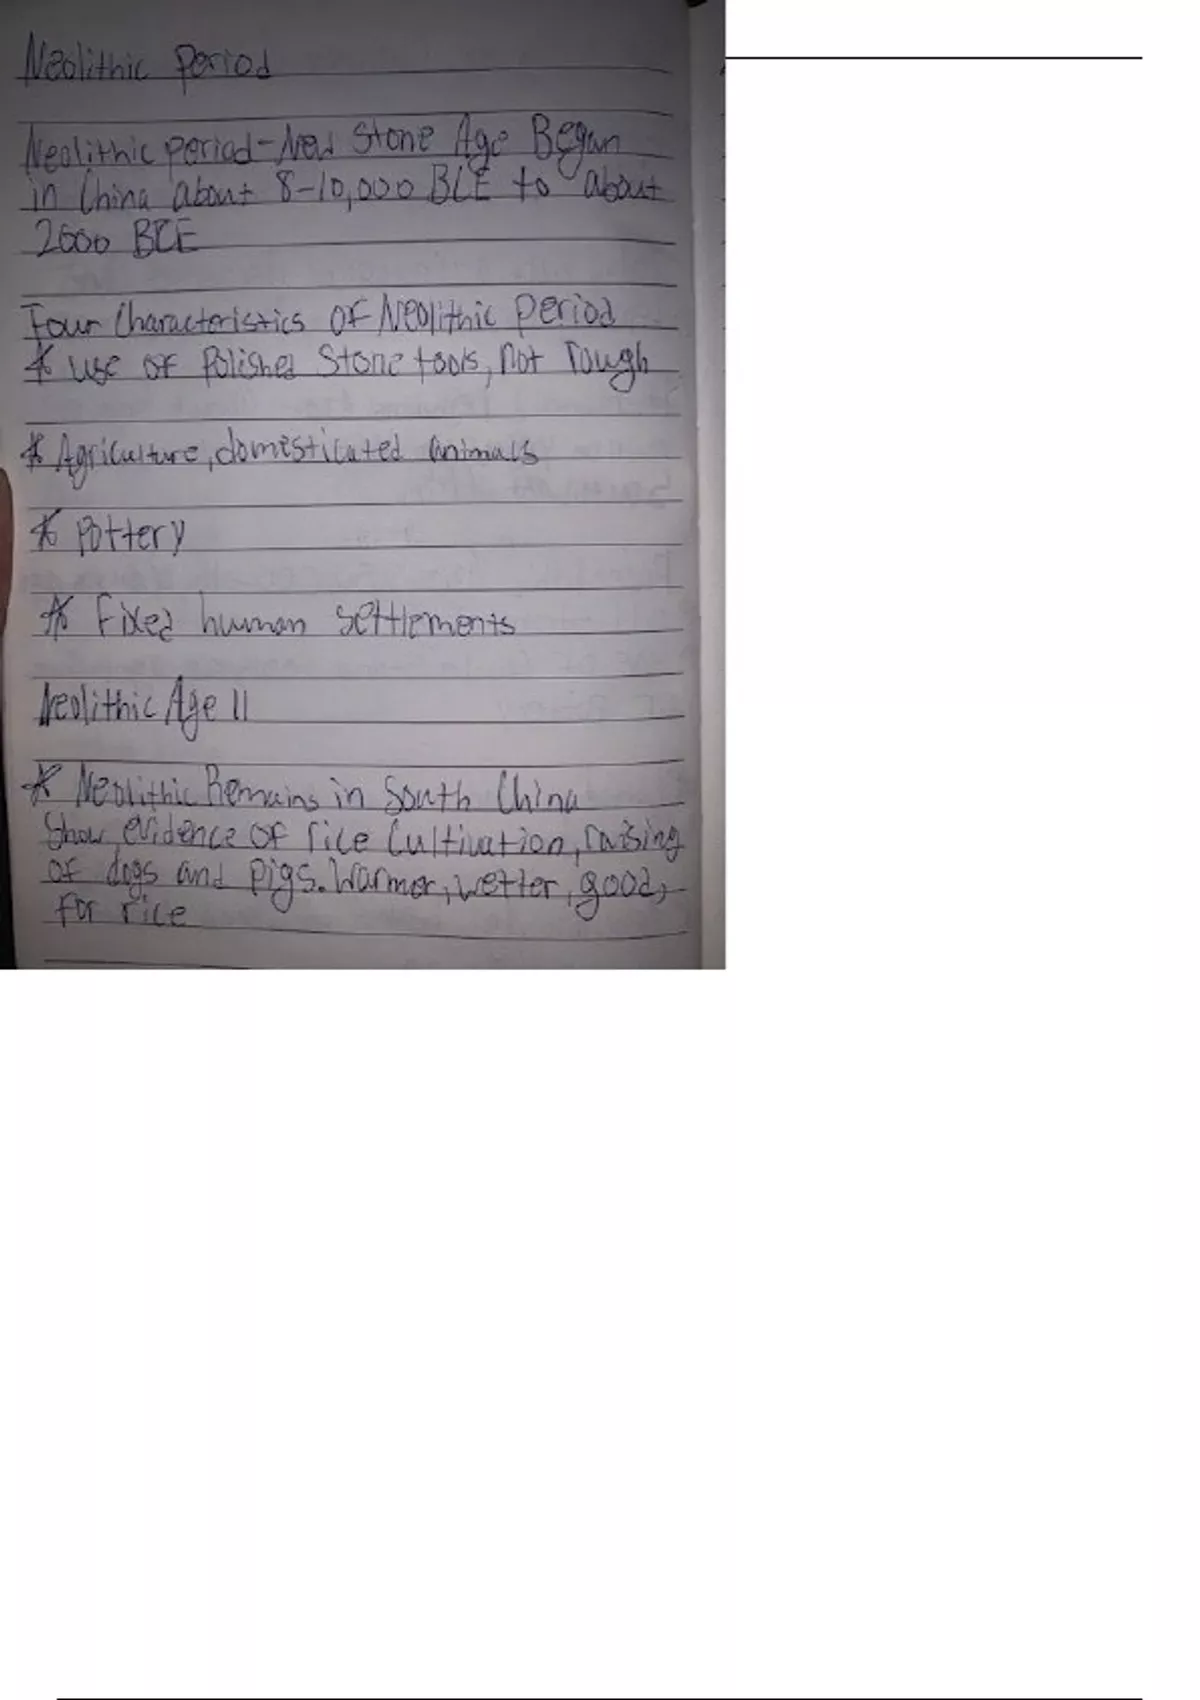 Neolithic Period
Neolithic period-New Stone Age Began
in China about 8-10,000 BCE to about
2000 BCE
Four Characteristics of Neolithic Period
* use of Polished Stone tools, not rough
* Agriculture, domesticated animals
* Pottery
* Fixed human settlements
Neolithic Age II
* Neolithic Remains in South China
Show evidence of rice Cultivation, raising
of dogs and pigs. Warmer, wetter, good,
for rice